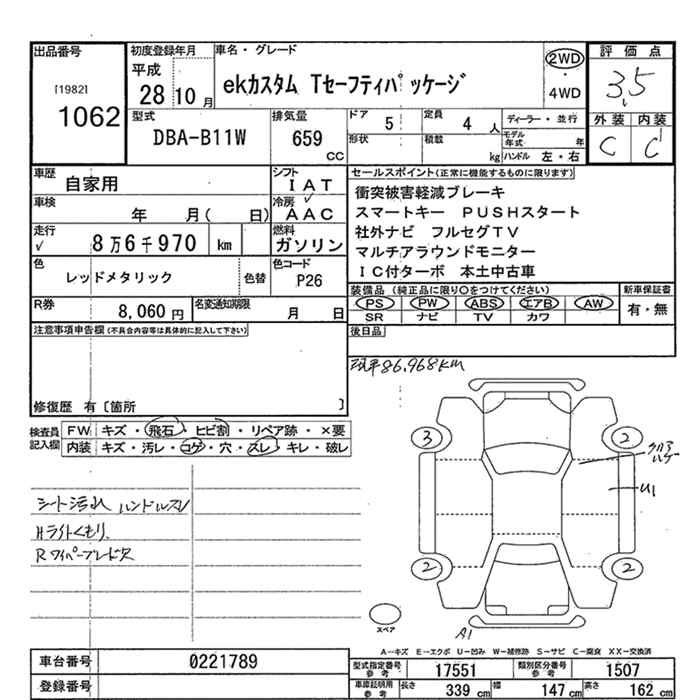 出品番号 初度登録年月 車名・グレード 評価点
[1982] 平成 ekカスタム Tセーフティパッケージ 2WD
1062 28 10月 ・ 4WD 3.5
型式 排気量 ドア 5 定員 4人 ディーラー・並行 外装 内装
DBA-B11W 659cc 形状 積載 kg モデル年式 年 C C
ハンドル 左・右
車歴 自家用 シフト IAT セールスポイント(正常に機能するものに限ります)
車検 年 月( 日) 冷房 AAC 衝突被害軽減ブレーキ
スマートキー PUSHスタート
走行 √ 8万6千970 km 燃料 ガソリン 社外ナビ フルセグTV
マルチアラウンドモニター
色 レッドメタリック 色替 色コード P26 IC付ターボ 本土中古車
装備品(純正品に限り○をつけてください) 新車保証書
R券 8,060円 名変通知期限 月 日 PS PW ABS エアB AW 有・無
SR ナビ TV カワ
注意事項申告欄(不具合内容等は具体的に記入して下さい) 後日品
現車86,968km
修復歴 有〔箇所 〕
検査員記入欄 FW キズ・飛石・ヒビ割・リペア跡・×要
内装 キズ・汚レ・コゲ・穴・スレ・キレ・破レ
3 2
クリアハゲ
U1
シート汚れ ハンドルスレ
Hライトくもり
Rワイパーブレード欠
2 2
スペア
A1
A-キズ E-エクボ U-凹み W-補修跡 S-サビ C-腐食 XX-交換済
車台番号 0221789 型式指定番号 参考 17551 類別区分番号 参考 1507
登録番号 車庫証明用 参考 長さ 339cm 幅 147cm 高さ 162cm